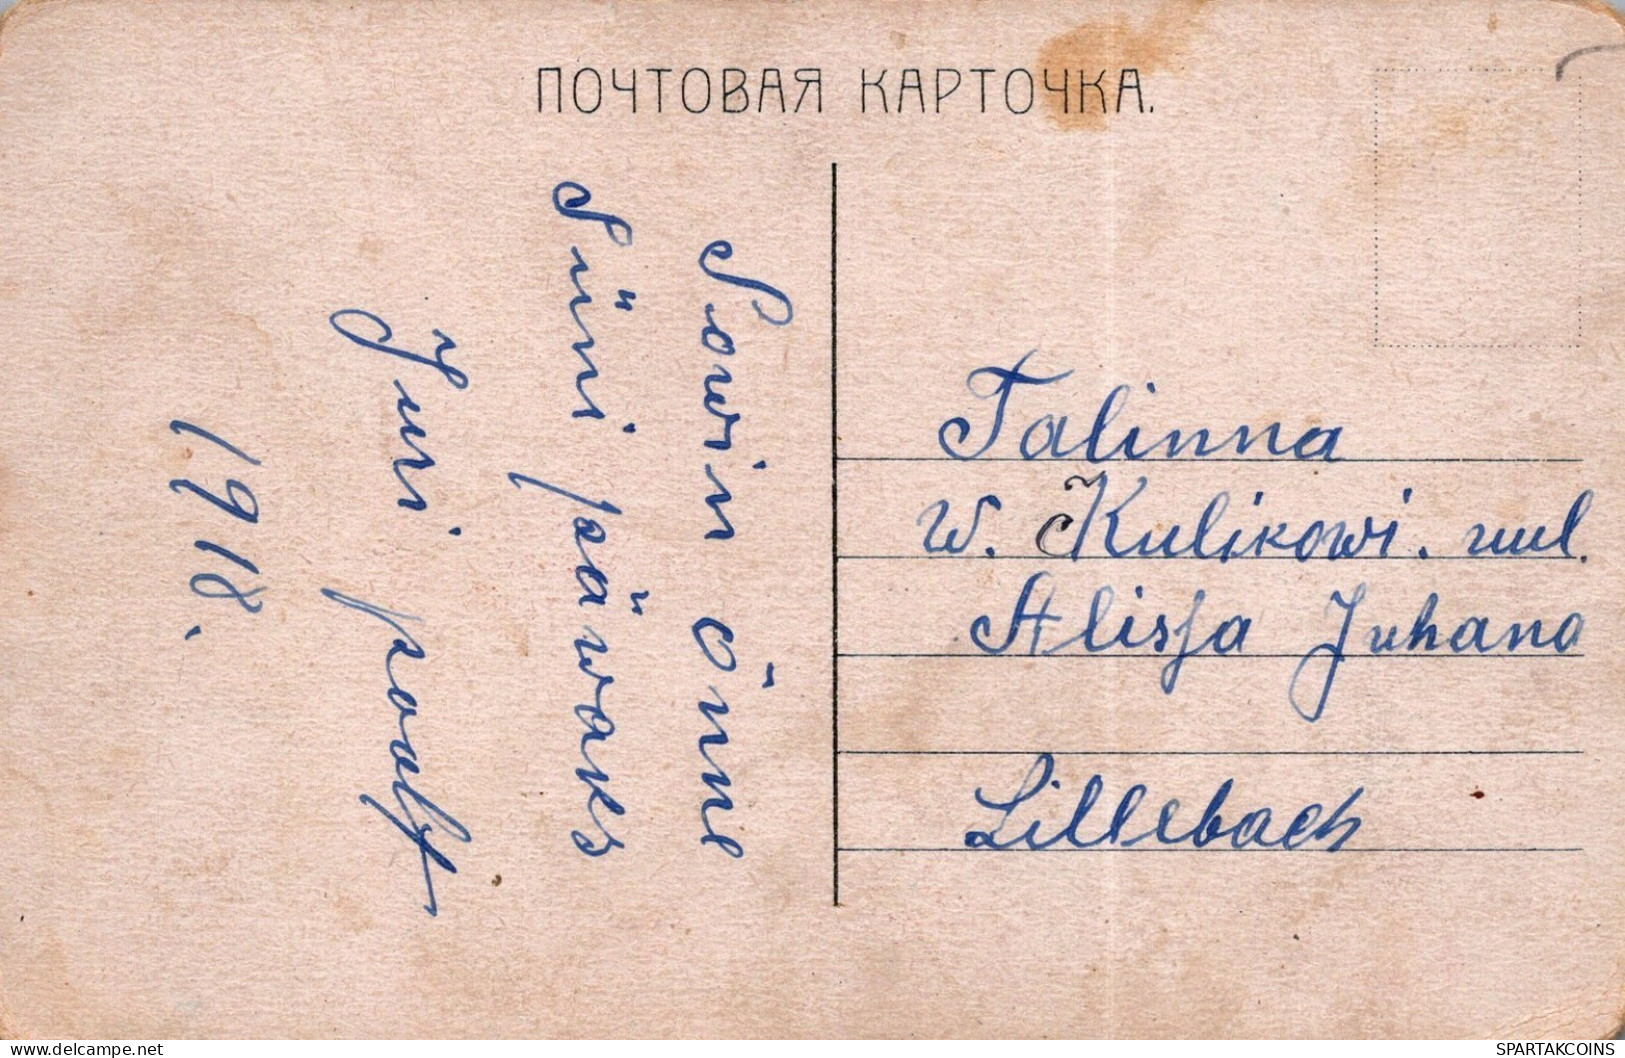 ПОЧТОВАЯ КАРТОЧКА.
Sowin õnne
Süni päwaks
Juri poolt
1918.
Talinna
W. Kulikowi. uul.
Alisja Juhana
Lillebach
delcampe.net
SPARTAKCOINS